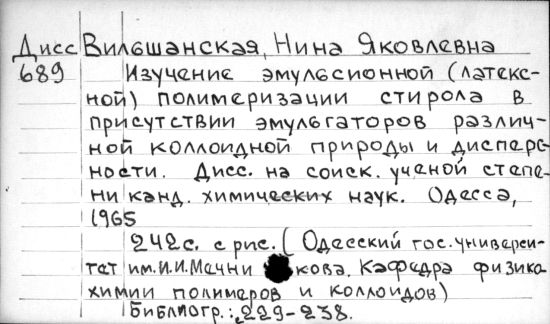 Дисс Вильшанская, Нина Яковлевна
689 Изучение эмульсионной (латекс-
ной) полимеризации стирола в
присутствии эмульгаторов различ-
ной коллоидной природы и дисперс-
ности. Дисс. на соиск. ученой степе-
ни канд. химических наук. Одесса,
1965
242с. с рис. (Одесский гос. универси-
тет им. И.И. Мечникова. Кафедра физико
химии полимеров и коллоидов)
Библиогр.: 229-238.